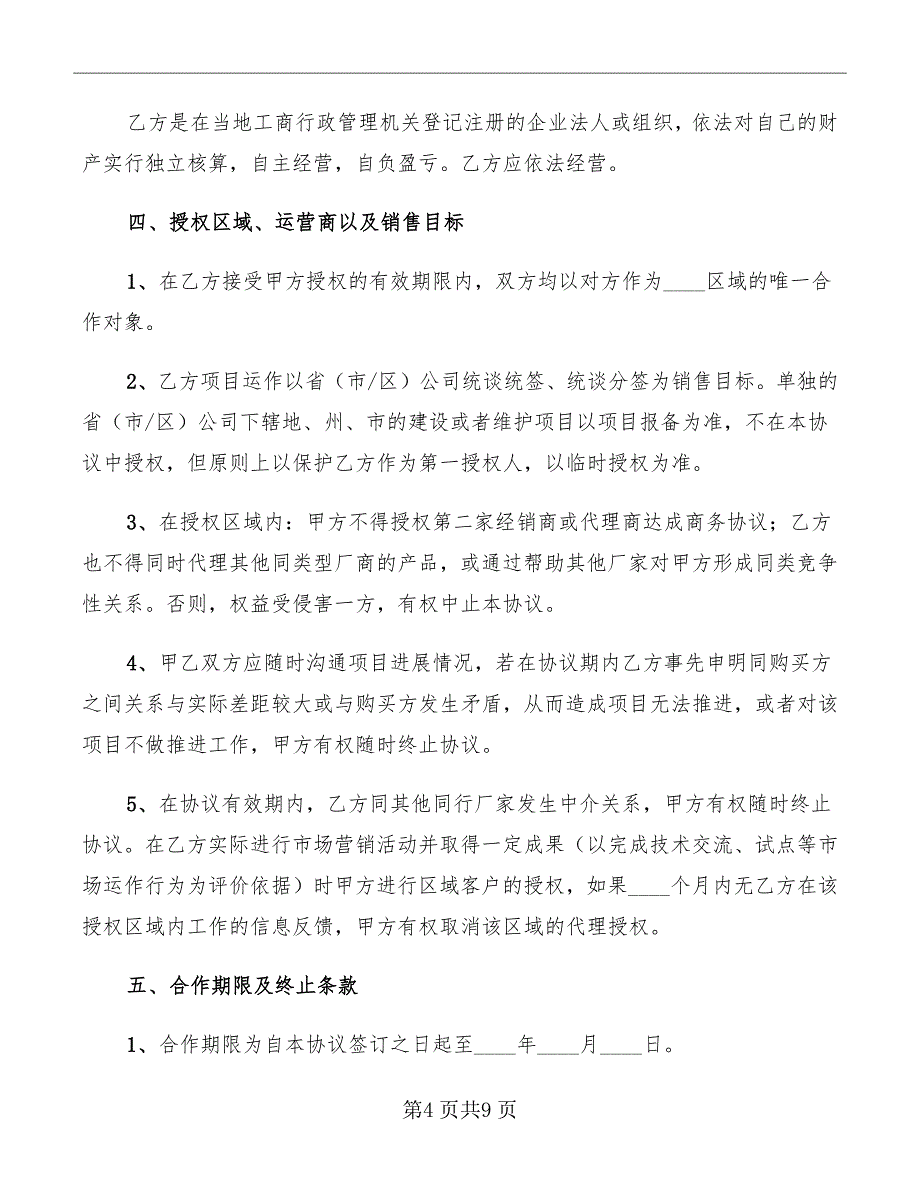 乙方是在当地工商行政管理机关登记注册的企业法人或组织，依法对自己的财
产实行独立核算，自主经营，自负盈亏。乙方应依法经营。
四、授权区域、运营商以及销售目标
1、在乙方接受甲方授权的有效期限内，双方均以对方作为____区域的唯一合
作对象。
2、乙方项目运作以省（市/区）公司统谈统签、统谈分签为销售目标。单独的
省（市/区）公司下辖地、州、市的建设或者维护项目以项目报备为准，不在本协
议中授权，但原则上以保护乙方作为第一授权人，以临时授权为准。
3、在授权区域内：甲方不得授权第二家经销商或代理商达成商务协议；乙方
也不得同时代理其他同类型厂商的产品，或通过帮助其他厂家对甲方形成同类竞争
性关系。否则，权益受侵害一方，有权中止本协议。
4、甲乙双方应随时沟通项目进展情况，若在协议期内乙方事先申明同购买方
之间关系与实际差距较大或与购买方发生矛盾，从而造成项目无法推进，或者对该
项目不做推进工作，甲方有权随时终止协议。
5、在协议有效期内，乙方同其他同行厂家发生中介关系，甲方有权随时终止
协议。在乙方实际进行市场营销活动并取得一定成果（以完成技术交流、试点等市
场运作行为为评价依据）时甲方进行区域客户的授权，如果____个月内无乙方在该
授权区域内工作的信息反馈，甲方有权取消该区域的代理授权。
五、合作期限及终止条款
1、合作期限为自本协议签订之日起至____年____月____日。
第4 页共9 页